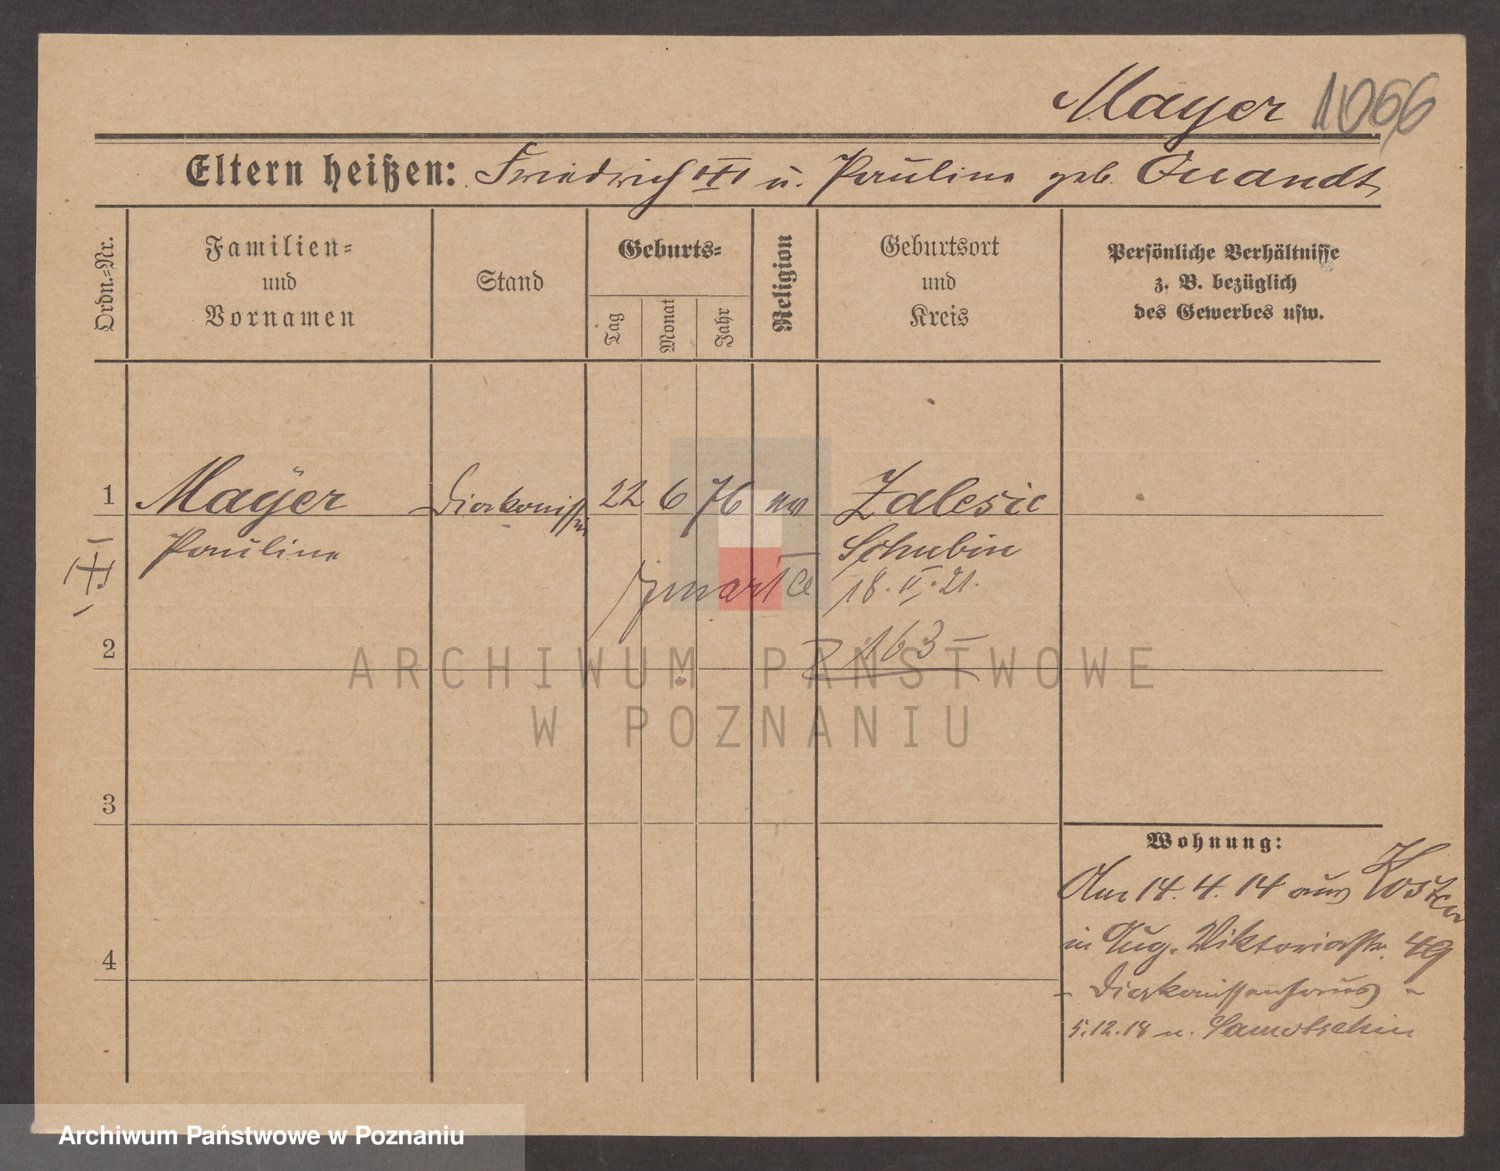 Mayer 1066
Eltern heißen: Friedrich u. Pauline geb. Quandt
Ordn.=Nr.
Familien=
und
Vornamen
Stand
Geburts=
Tag
Monat
Jahr
Religion
Geburtsort
und
Kreis
Persönliche Verhältnisse
z. B. bezüglich
des Gewerbes usw.
1 Mayer Diakonissin 22 6 76 ev Zalesie
Pauline Schubin
zmarła 18. II. 21.
163
2
3
4
Wohnung:
Am 14. 4. 14 aus Kosten
in Aug. Viktoriastr. 49
- Diakonissenhaus -
5.12.18 n. Samotschin
ARCHIWUM PAŃSTWOWE
W POZNANIU
Archiwum Państwowe w Poznaniu